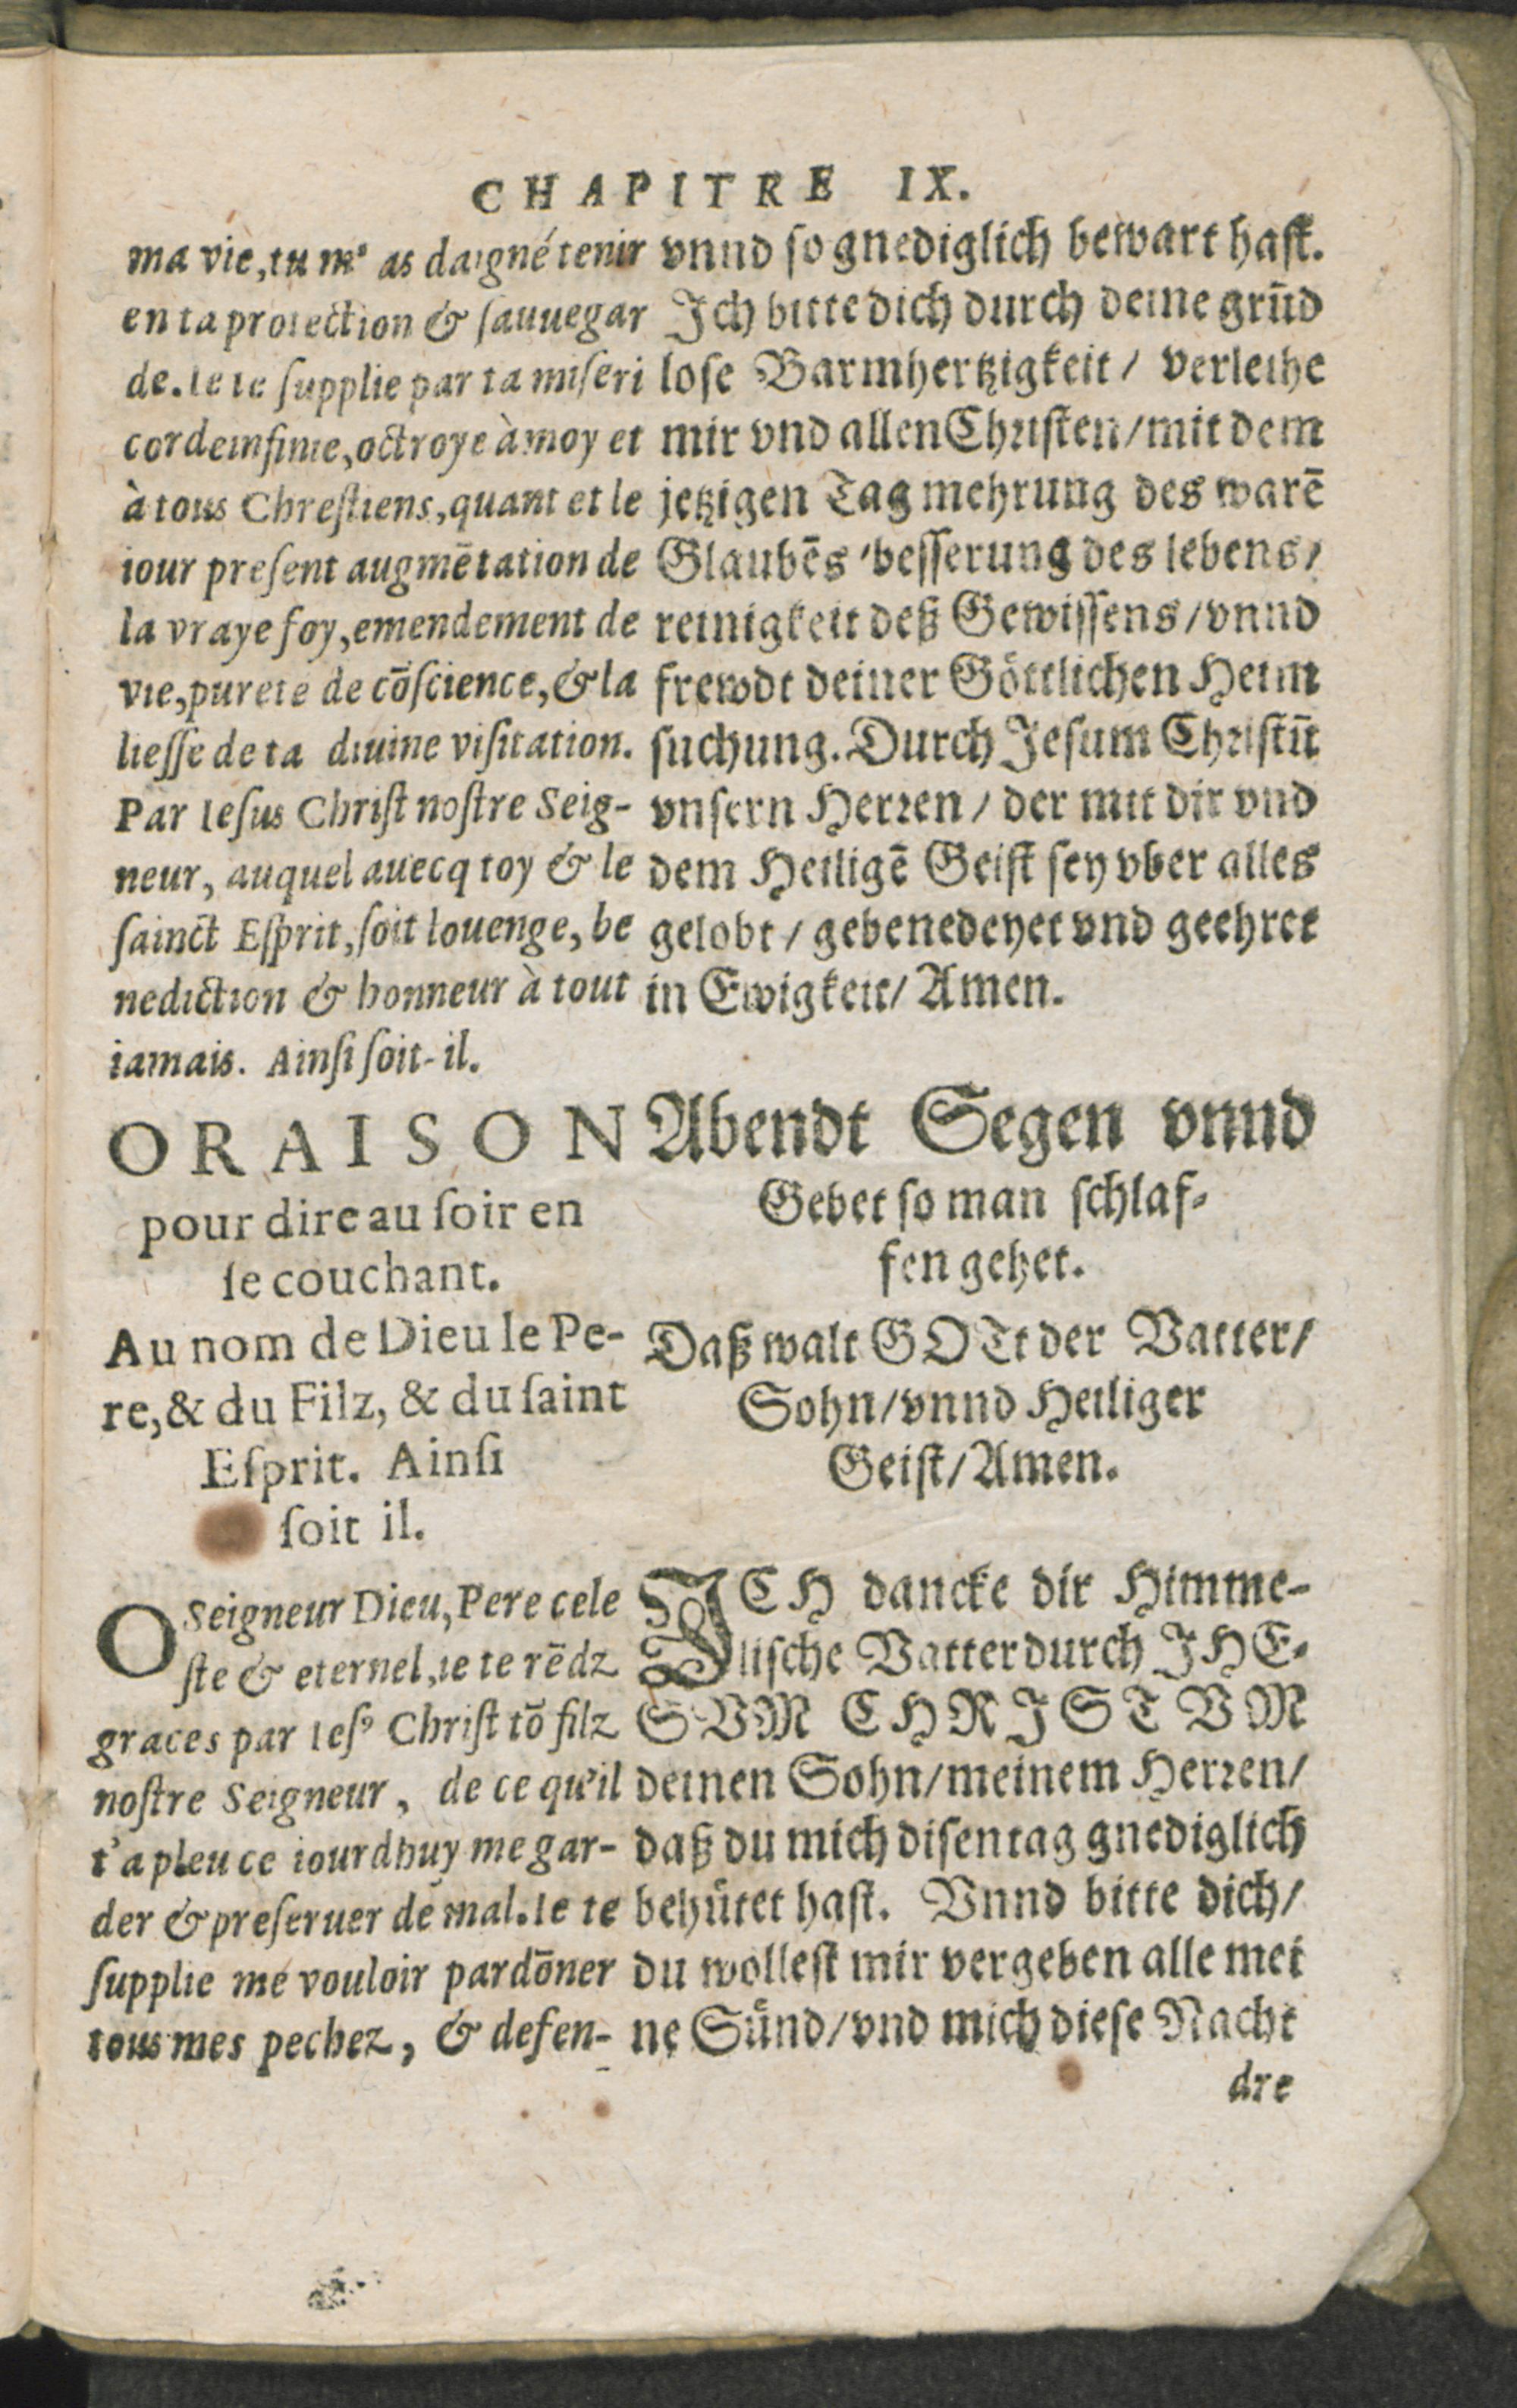 CHAPITRE IX.
ma vie, tu m' as daigné tenir
en ta protection & sauuegar
de. Ie te supplie par ta miseri
corde infinie, octroye à moy et
à tous Chrestiens, quant et le
iour present augmētation de
la vraye foy, emendement de
vie, pureté de cōscience, & la
liesse de ta diuine visitation.
Par Iesus Christ nostre Seig-
neur, auquel auecq toy & le
sainct Esprit, soit louenge, be
nediction & honneur à tout
iamais. Ainsi soit-il.
ORAISON
pour dire au soir en
se couchant.
Au nom de Dieu le Pe-
re, & du Filz, & du saint
Esprit. Ainsi
soit il.
O Seigneur Dieu, Pere cele
ste & eternel, ie te rēdz
graces par Iesꝰ Christ tō filz
nostre Seigneur, de ce qu'il
t'a pleu ce iourdhuy me gar-
der & preseruer de mal. Ie te
supplie me vouloir pardōner
tous mes pechez, & defen-
vnnd so gnediglich bewart hast.
Ich bitte dich durch deine grūd
lose Barmhertzigkeit / verleihe
mir vnd allen Christen / mit dem
jetzigen Tag mehrung des warē
Glaubēs / besserung des lebens /
reinigkeit deß Gewissens / vnnd
frewdt deiner Göttlichen Heim
suchung. Durch Jesum Christū
vnsern Herren / der mit dir vnd
dem Heiligē Geist sey vber alles
gelobt / gebenedeyet vnd geehret
in Ewigkeit / Amen.
Abendt Segen vnnd
Gebet so man schlaf-
fen gehet.
Daß walt GOTt der Vatter /
Sohn / vnnd Heiliger
Geist / Amen.
ICH dancke dir Himme-
lische Vatter durch JHE-
SVM CHRISTVM
deinen Sohn / meinem Herren /
daß du mich disen tag gnediglich
behütet hast. Vnnd bitte dich /
du wollest mir vergeben alle mei
ne Sünd / vnd mich diese Nacht
dre